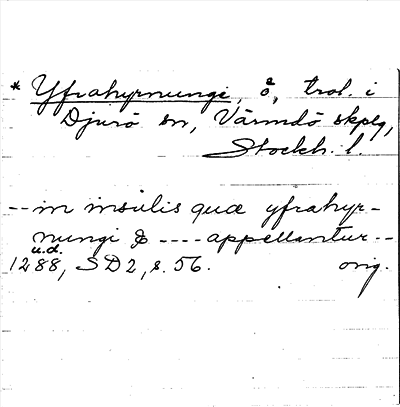 * Yfrahyrnungi, ö, trol. i
Djurö sn, Värmdö skplg,
Stockh. l.
-- in insulis quæ yfrahyr-
nungi & ---- appellantur --
u.d.
1288, SD2, s. 56. orig.